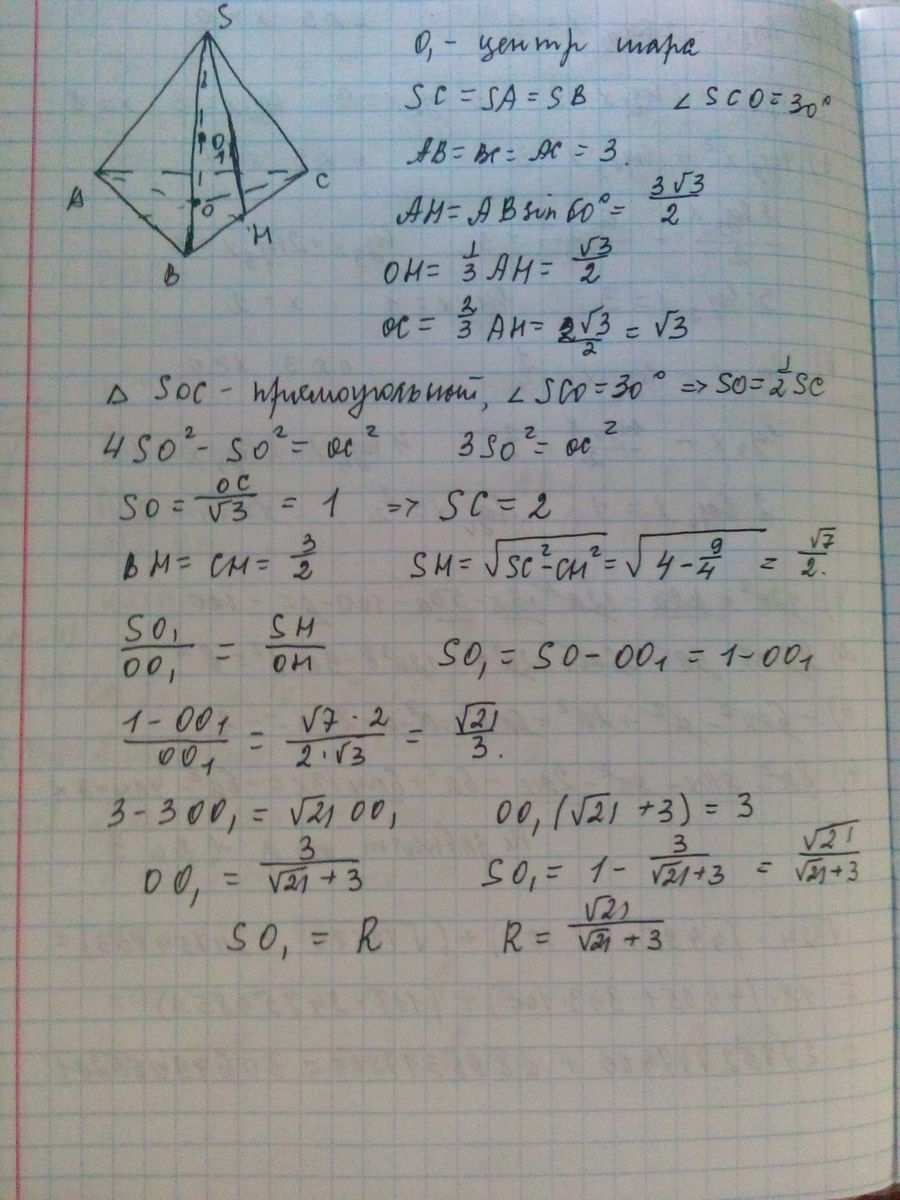 S
O₁ - центр шара
SC = SA = SB ∠SCO = 30°
AB = BC = AC = 3.
A O₁ C
O
H
B
AH = AB sin 60° = 3√3/2
OH = 1/3 AH = √3/2
OC = 2/3 AH = 2√3/2 = √3
Δ SOC - прямоугольный, ∠SCO = 30° => SO = 1/2 SC
4SO² - SO² = OC² 3SO² = OC²
SO = OC/√3 = 1 => SC = 2
BH = CH = 3/2 SH = √(SC² - CH²) = √(4 - 9/4) = √7/2.
SO₁/OO₁ = SH/OH SO₁ = SO - OO₁ = 1 - OO₁
(1 - OO₁)/OO₁ = √7 · 2/(2 · √3) = √21/3.
3 - 3OO₁ = √21 OO₁ OO₁(√21 + 3) = 3
OO₁ = 3/(√21 + 3) SO₁ = 1 - 3/(√21 + 3) = √21/(√21 + 3)
SO₁ = R R = √21/(√21 + 3)